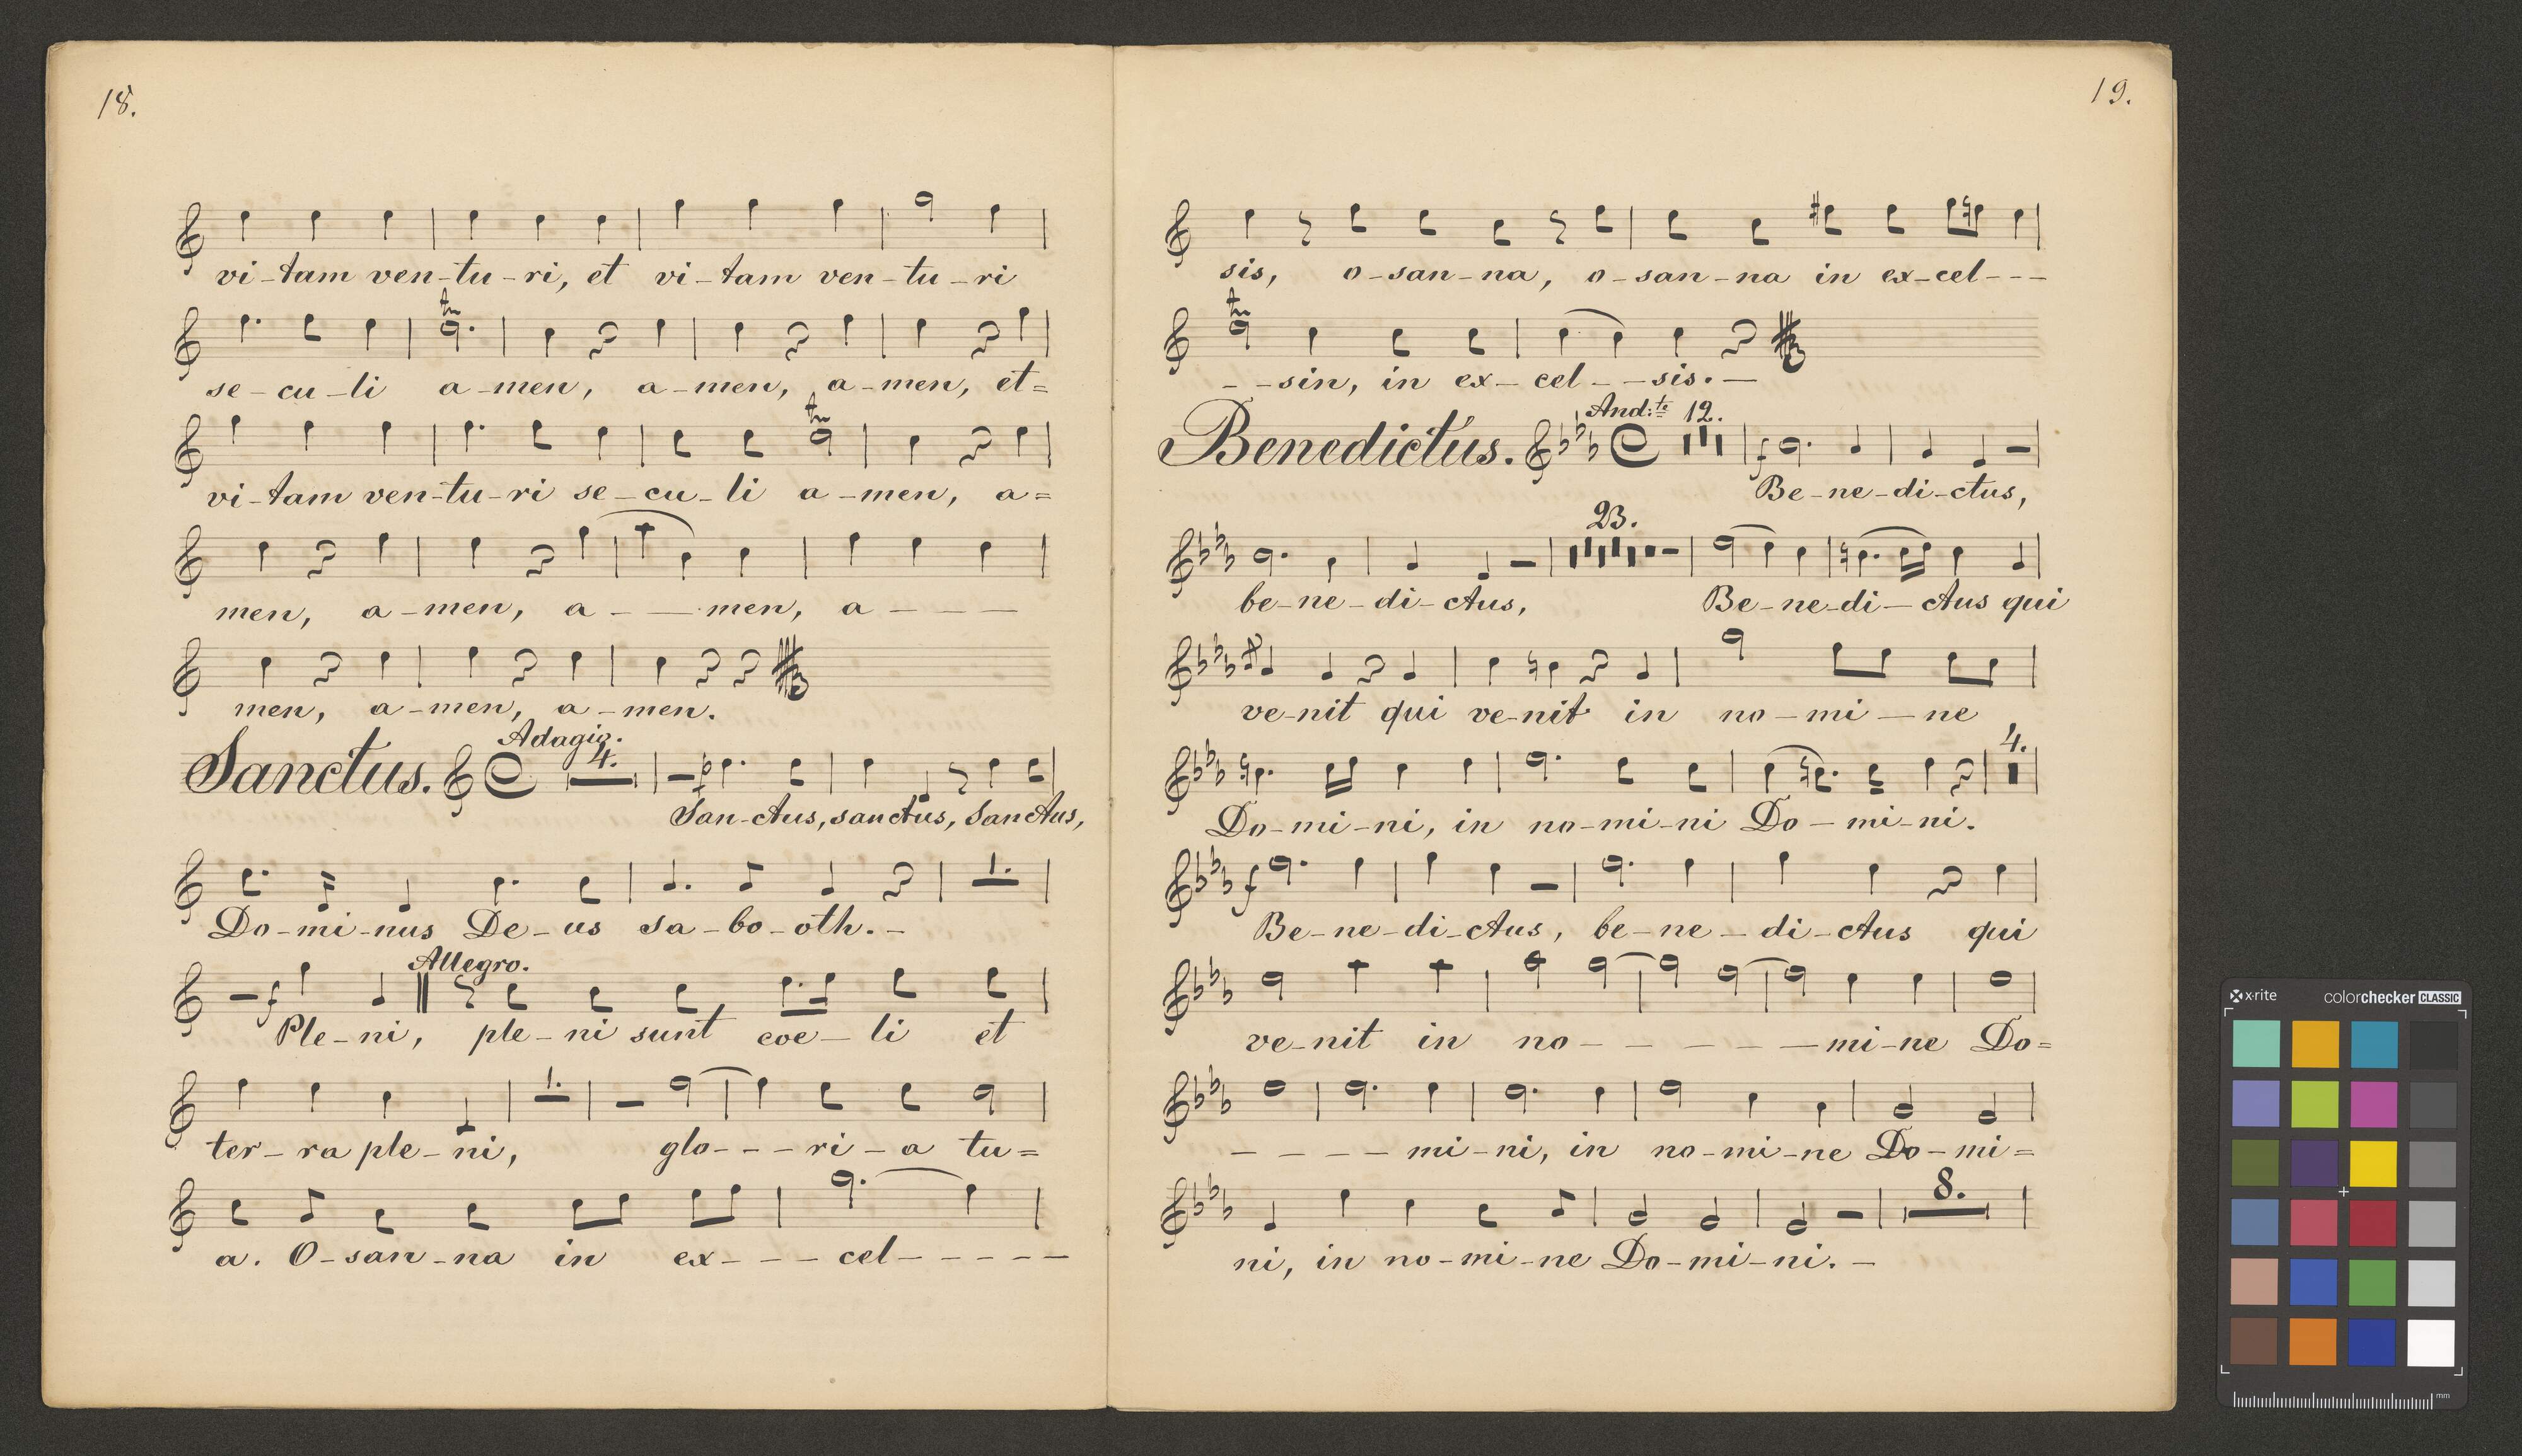 18.
vi-tam ven-tu-ri, et vi-tam ven-tu-ri
tr
se-cu-li a-men, a-men, a-men, et=
tr
vi-tam ven-tu-ri se-cu-li a-men, a=
men, a-men, a- — men, a - - -
men, a-men, a-men.
Adagio.
4.
Sanctus. f
San-ctus, sanctus, Sanctus,
1.
Do-mi-nus De-us Sa-bo-oth. -
Allegro.
f
Ple-ni, ple-ni sunt coe-li et
1.
ter-ra ple-ni, glo- - - ri-a tu=
a. O-san-na in ex- - - cel- - - - -
19.
sis, o-san-na, o-san-na in ex-cel- - -
tr
- -sin, in ex-cel- -sis. -
And:te 12.
Benedictus. f
Be-ne-di-ctus,
23.
be-ne-di-ctus, Be-ne-di-ctus qui
ve-nit qui ve-nit in no-mi-ne
4.
Do-mi-ni, in no-mi-ni Do-mi-ni.
f
Be-ne-di-ctus, be-ne-di-ctus qui
ve-nit in no- - - - - -mi-ne Do=
- - - - mi-ni, in no-mi-ne Do-mi=
8.
ni, in no-mi-ne Do-mi-ni. -
x-rite colorchecker CLASSIC
mm